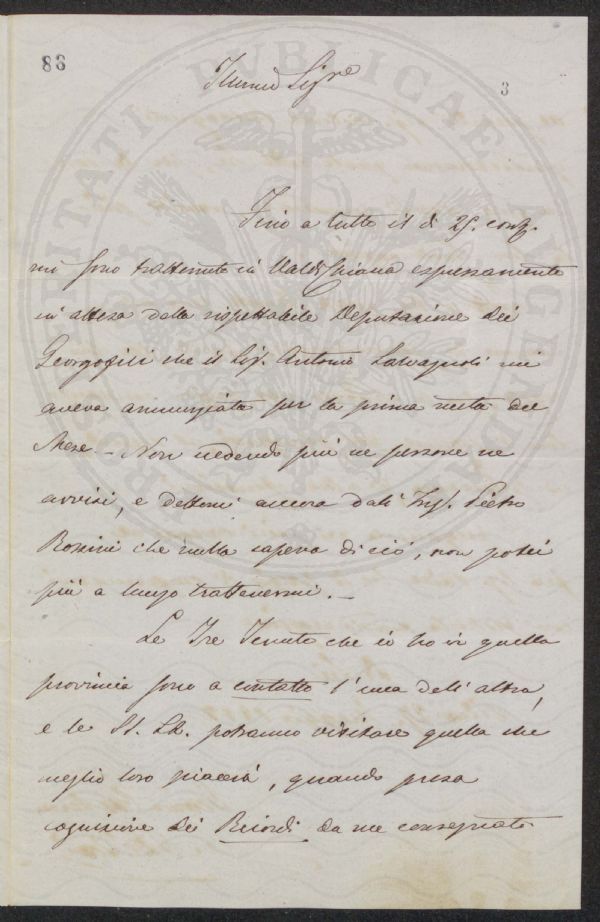 83
3
Illumo Sigre
Fino a tutto il dì 25. corrẽ.
mi sono trattenuto in Valdichiana espressamente
in attesa della rispettabile Deputazione dei
Georgofili che il Sig. Antonio Salvagnoli mi
aveva annunziata per la prima metà del
Mese. - Non vedendo più ne persone ne
avvisi, e dettomi ancora dall' Ing. Pietro
Rossini che nulla sapeva di ciò, non potei
più a lungo trattenermi. -
Le Tre Tenute che io ho in quella
provincia sono a contatto l'una dell' altra,
e le SS. LL. potranno visitare quella che
meglio loro piacerà, quando presa
cognizione dei Ricordi da me consegnati
POSTERITATI PUBLICAE AUGENDA